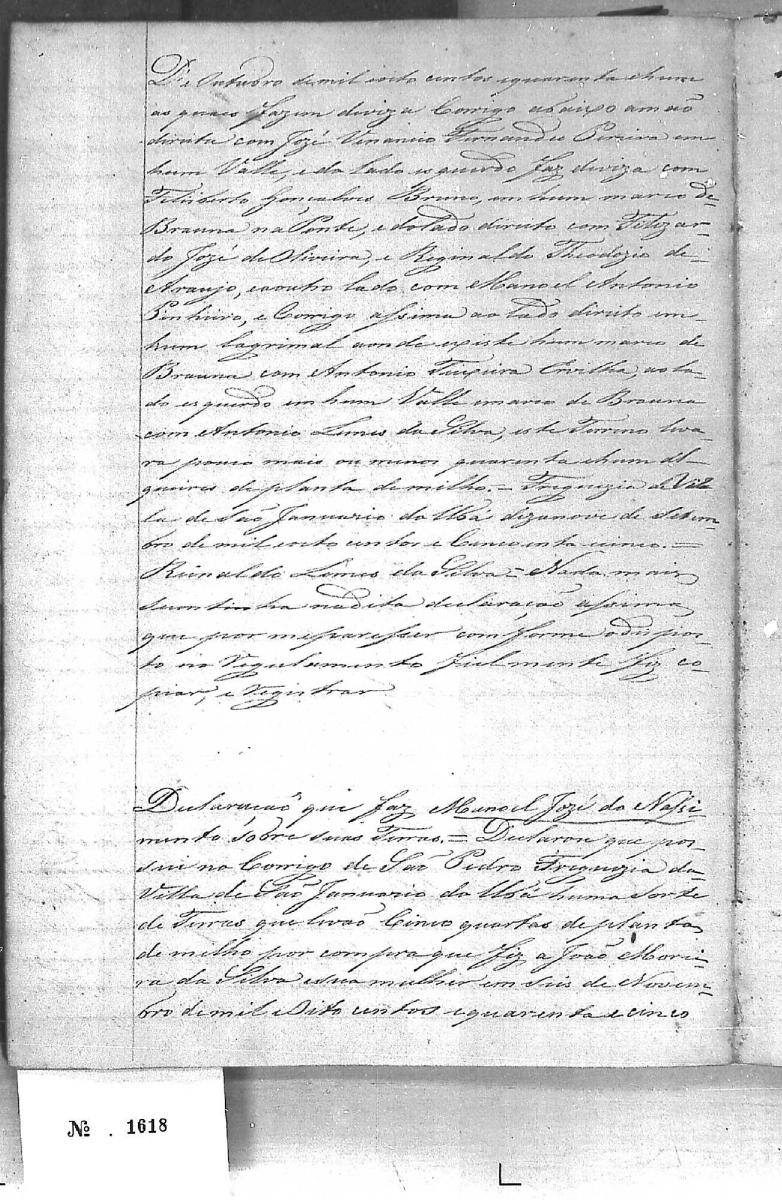 De Outubro de mil oito centos e quarenta e hum
as quaes fazem diviza Corrigo abaixo a mão
direita com Jozé Venancio Fernandes Pereira em
hum Valle, e do lado esquerdo faz diviza com
Feliberto Gonçalves Bruno, em hum marco de
Brauna na Ponte, e do lado direito com Felizar-
do Jozé de Oliveira, e Reginaldo Theodozio de
Araujo, e a outro lado com Manoel Antonio
Pinheiro, e Corrigo assima ao lado direito em
hum lagrimal aonde existe hum marco de
Brauna com Antonio Teixeira Ervilha, ao la-
do esquerdo em hum Valle e marco de Brauna
com Antonio Lemes da Silva, este Terreno leva-
ra pouco mais ou menos quarenta e hum al-
queires de planta de milho. = Freguezia da Vil-
la de São Januario do Ubá dezanove de Setem-
bro de mil oito centos e Cincoenta cinco. =
Reinaldo Lemes da Silva = Nada mais
se continha na dita declaração assima
que por me paresser com forme o dispos-
to no Regulamento fielmente fiz co-
piar, e Registrar
Declaração que faz Manoel Jozé do Nassi-
mento sobre suas Terras. = Declaro que pos-
sui no Corrigo de São Pedro Freguezia da
Villa de São Januario do Ubá huma Sorte
de Terras que levão Cinco quartas de planta
de milho por compra que fiz a João Morei-
ra da Silva e sua mulher em seis de Novem-
bro de mil e Oito centos e quarenta e cinco
№ . 1618